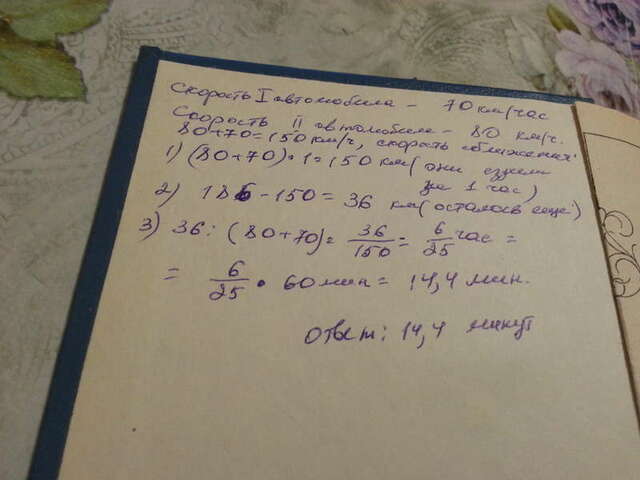 Скорость I автомобиля - 70 км/час
Скорость II автомобиля - 80 км/ч.
80+70=150 км/ч, скорость сближения.
1) (80+70)·1=150 км (они ехали
за 1 час)
2) 186-150=36 км (осталось ещё)
3) 36:(80+70)= 36/150 = 6/25 час =
= 6/25 · 60 мин = 14,4 мин.
Ответ: 14,4 минут